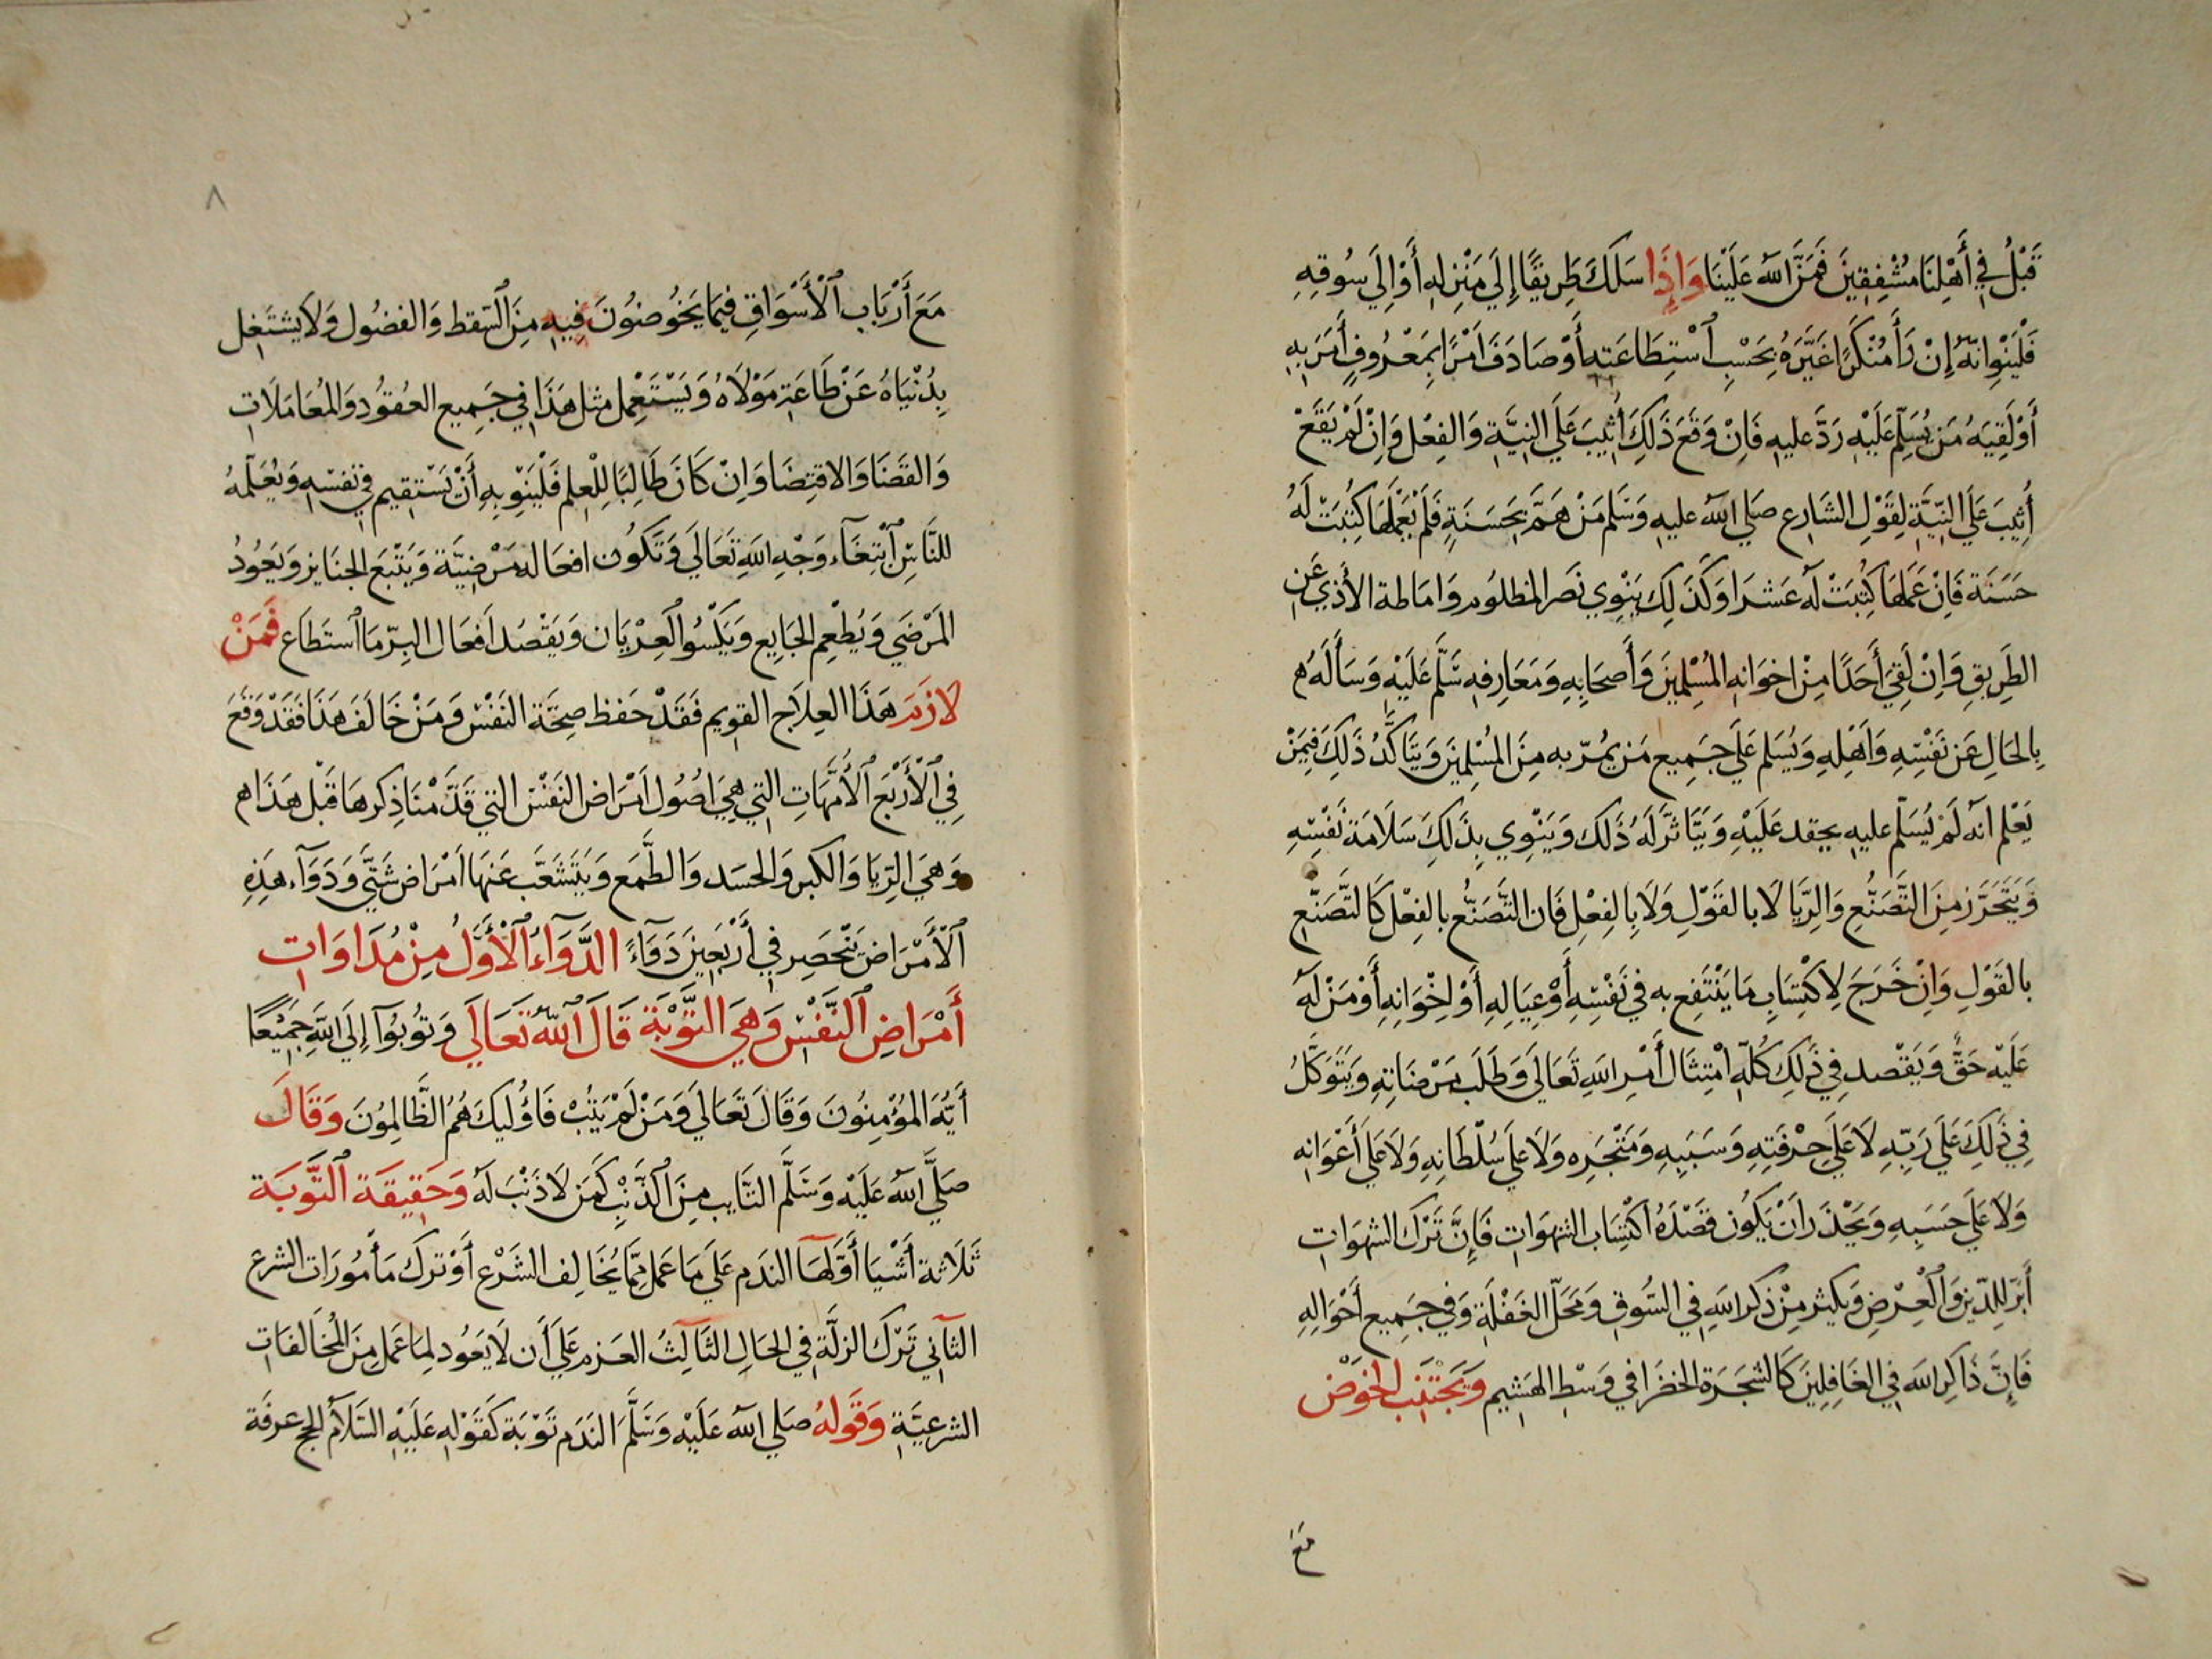 قَبْلُ فِي أَهْلِنَا مُشْفِقِينَ فَمَنَّ اللَّهُ عَلَيْنَا وَإِذَا سَلَكَ طَرِيقًا إِلَى مَنْزِلِهِ أَوْ إِلَى سُوقِهِ
فَلْيَنْوِ انّهُ إِنْ رَأَ مُنْكَرًا غَيَّرَهُ بِحَسْبِ ٱسْتِطَاعَتِهِ أَوْ صَادَفَ امْرًا بِمَعْرُوفٍ أَمَرَ بِهِ
أَوْ لَقِيَهُ مَن يُسَلِّمُ عَلَيْهِ رَدَّ عليهِ فَانْ وَقَعَ ذَلِكَ أُثِيبَ عَلَى النِيَّةِ وَالفِعْل وَانْ لَمْ يَقَعْ
أُثِيبَ عَلَى النِيَّةِ لِقَوْلِ الشَارِع صَلى اللهُ عليهِ وَسَلم مَنْ هَمَّ بِحَسَنَةٍ فَلَمْ يَعْمَلْهَا كُتِبَتْ لَهُ
حَسَنَة فَإِنْ عَمَلهَا كُتِبَتْ لَهُ عَشرَا وَكَذَلِكَ يَنْوِي نَصر المظلُوم وَامَاطة الأَذي عَنِ
الطَرِيقِ وَاِنْ لَقِيَ أَحَدًا مِنْ اخوَانهِ المُسْلِمِينَ وَأَصحَابِهِ وَمَعَارِفهِ سَلَّم عَلَيْهِ وَسَأَلَهُ ه
بِالحَالِ عَن نَفْسِهِ وَاَهْلِهِ وَيُسَلم عَلَى جَمِيع مَن يمُرّ به مِنَ المُسْلِمِينَ وَيَتَاكَّدُ ذَلِكَ فِيمَنْ
يَعْلم انهُ لَمْ يُسَلّم عليهِ بحقد عَلَيْهِ وَيَتَاثَّرَ لَهُ ذَلك وَيَنْوِي بِذَلكِ سَلَامَة نَفْسِهِ
وَيَتَحَرَّز مِنَ التَّصَنُّعِ وَالرِّيَا لَا بالقَوْلِ وَلَا بِالفِعْلِ فَان التَّصَنُّع بالفِعْل كَالتَّصَنّعِ
بالقَوْلِ وَاِنْ خَرَجَ لِاكْتِسَابِ مَا يَنْتَفِع به فِي نَفْسِهِ أَوْ عِيَالِهِ أَوْ لِخْوَانِهِ أَوْ مَنْ لَهُ
عَلَيْهِ حَقٌّ وَيَقْصد فِي ذَلِكَ كُلّهِ امْتِثَال أَمْرِ اللهِ تَعَالَى وَطَلَب مَرْضَاتِهِ وَيَتَوَكَّلُ
فِي ذَلِكَ عَلَى رَبِّهِ لَا عَلَى حِرْفَتِهِ وَسَبَبِهِ وَمَتْجَرِه وَلَا عَلَى سُلْطَانِهِ وَلَا عَلَى أَعْوَانِه
وَلَا عَلَى حَسَبِهِ وَيَحْذَر اَنْ يَكُون قَصْدَهُ اكْتِسَاب الشهَوَاتِ فَإِنَّ تَرْكَ الشهَوَاتِ
أَبَرّ لِلدّينِ وَالْعِرْضِ وَيكثر مِنْ ذكر اللهِ فِي السُّوقِ وَمَحَلّ الغَفْلَةِ وَفي جَمِيع أَحْوَالِهِ
فَاِنَّ ذَاكِر اللهَ فِي الغَافِلِينَ كَالشَجَرَة الخضَرا في وَسْطِ الهَشِيم وَيَجْتَنِب الخَوْض
مَعَ
٨
مَعَ أَرْبَاب الْأَسْوَاقِ فِيمَا يَخُوضُونَ فِيهِ مِنَ السَقط وَالفضُول وَلَا يشتَغل
بِدُنْيَاهُ عَنْ طَاعَةِ مَوْلَاهُ وَيَسْتَعْمِل مثل هَذَا فِي جَمِيع العُقُودِ وَالمُعَامَلَاتِ
وَالقَضَا وَالاقتِضَا وَاِنْ كَانَ طَالِبًا لِلْعِلم فَلْيَنْوِ بِهِ أَنْ يَسْتَقِيم في نَفسِهِ وَيُعَلّمهُ
للنَّاسِ ٱبْتِغَآء وَجْهِ اللهِ تَعَالَى وَتَكُون افعَاله مَرْضِيَّة وَيَتْبَع الجنَايز وَيَعُودُ
المَرْضَي وَيُطْعِم الجَايع وَيَكْسُو العِرْيَان وَيَقْصُد اَفعَال البِرّ مَا ٱستَطَاع فَمَنْ
لَازَمَ هَذَا العِلَاج القوِيم فَقَدْ حَفظ صِحَّة النَفسْ وَمَنْ خَالَفَ هَذَا فَقَدْ وَقَعَ
فِي الْأَرْبَع الْأُمَّهَاتِ التِي هِيَ اُصُول اَمْرَاض النَفسْ التي قَدَّمْنَا ذِكرهَا قَبْل هَذَا ه
وَهيَ الرِّيَا وَالكبر وَالحسَد وَالطَّمَع وَيَتَشَعَّب عَنهَا اَمْرَاض شَتَّي وَدَوَآء هَذِهِ
الْأَمْرَاض يَنْحَصِر فِي أَرْبَعِينَ دَوَآءً الدَّوَآءُ الْأَوَّلُ مِنْ مُدَاوَاتِ
أَمْرَاضِ النَّفْسِ وَهيَ التَّوْبَة قَالَ اللهُ تَعَالَى وَتُوبُوآ إِلَى اللهِ جَمِيْعًا
أَيُّهَ المؤْمِنُونَ وَقَالَ تَعَالَى وَمَنْ لَمْ يَتُبْ فَاؤُلَيِكَ هُمُ الظَّالِمُونَ وَقَالَ
صَلَّي اللهُ عَلَيْهِ وَسَلَّم التَّايب مِنَ الذَّنْبِ كَمَن لَا ذَنْبَ لَهُ وَحَقِيقَة التَّوْبَة
ثَلَاثة أَشْيَا أَوَّلهَا الندَم عَلَى مَا عَمل مِمَّا يُخَالِف الشَرْع أَوْ تركَ مَأمُورَات الشرع
الثآنِي تَرْك الزلَّة فِي الحَالِ الثَّالِثُ العَزم عَلَي أَن لَا يَعُود لِمَا عَمل مِنَ المُخَالفَات
الشرعِيَّةِ وَقَولهُ صَلي اللهُ عَلَيْهِ وَسَلَّمَ النَدَم تَوْبَة كَقَوْلهِ عَلَيْهِ السَّلَامُ الحج عرفَة